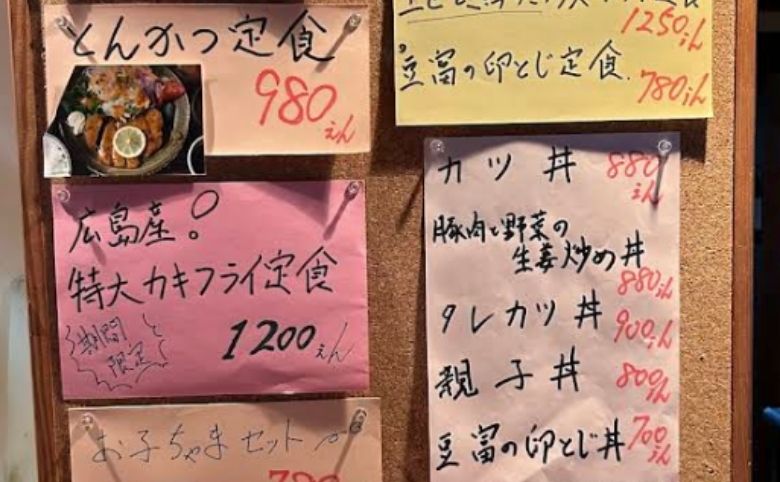 とんかつ定食
980えん
広島産!
特大カキフライ定食
期間
限定
1200えん
お子ちゃまセット
780
定食
1250えん
豆富の卵とじ定食
780えん
カツ丼 880えん
豚肉と野菜の
生姜炒め丼
880えん
タレカツ丼 900えん
親子丼 800えん
豆富の卵とじ丼 700えん